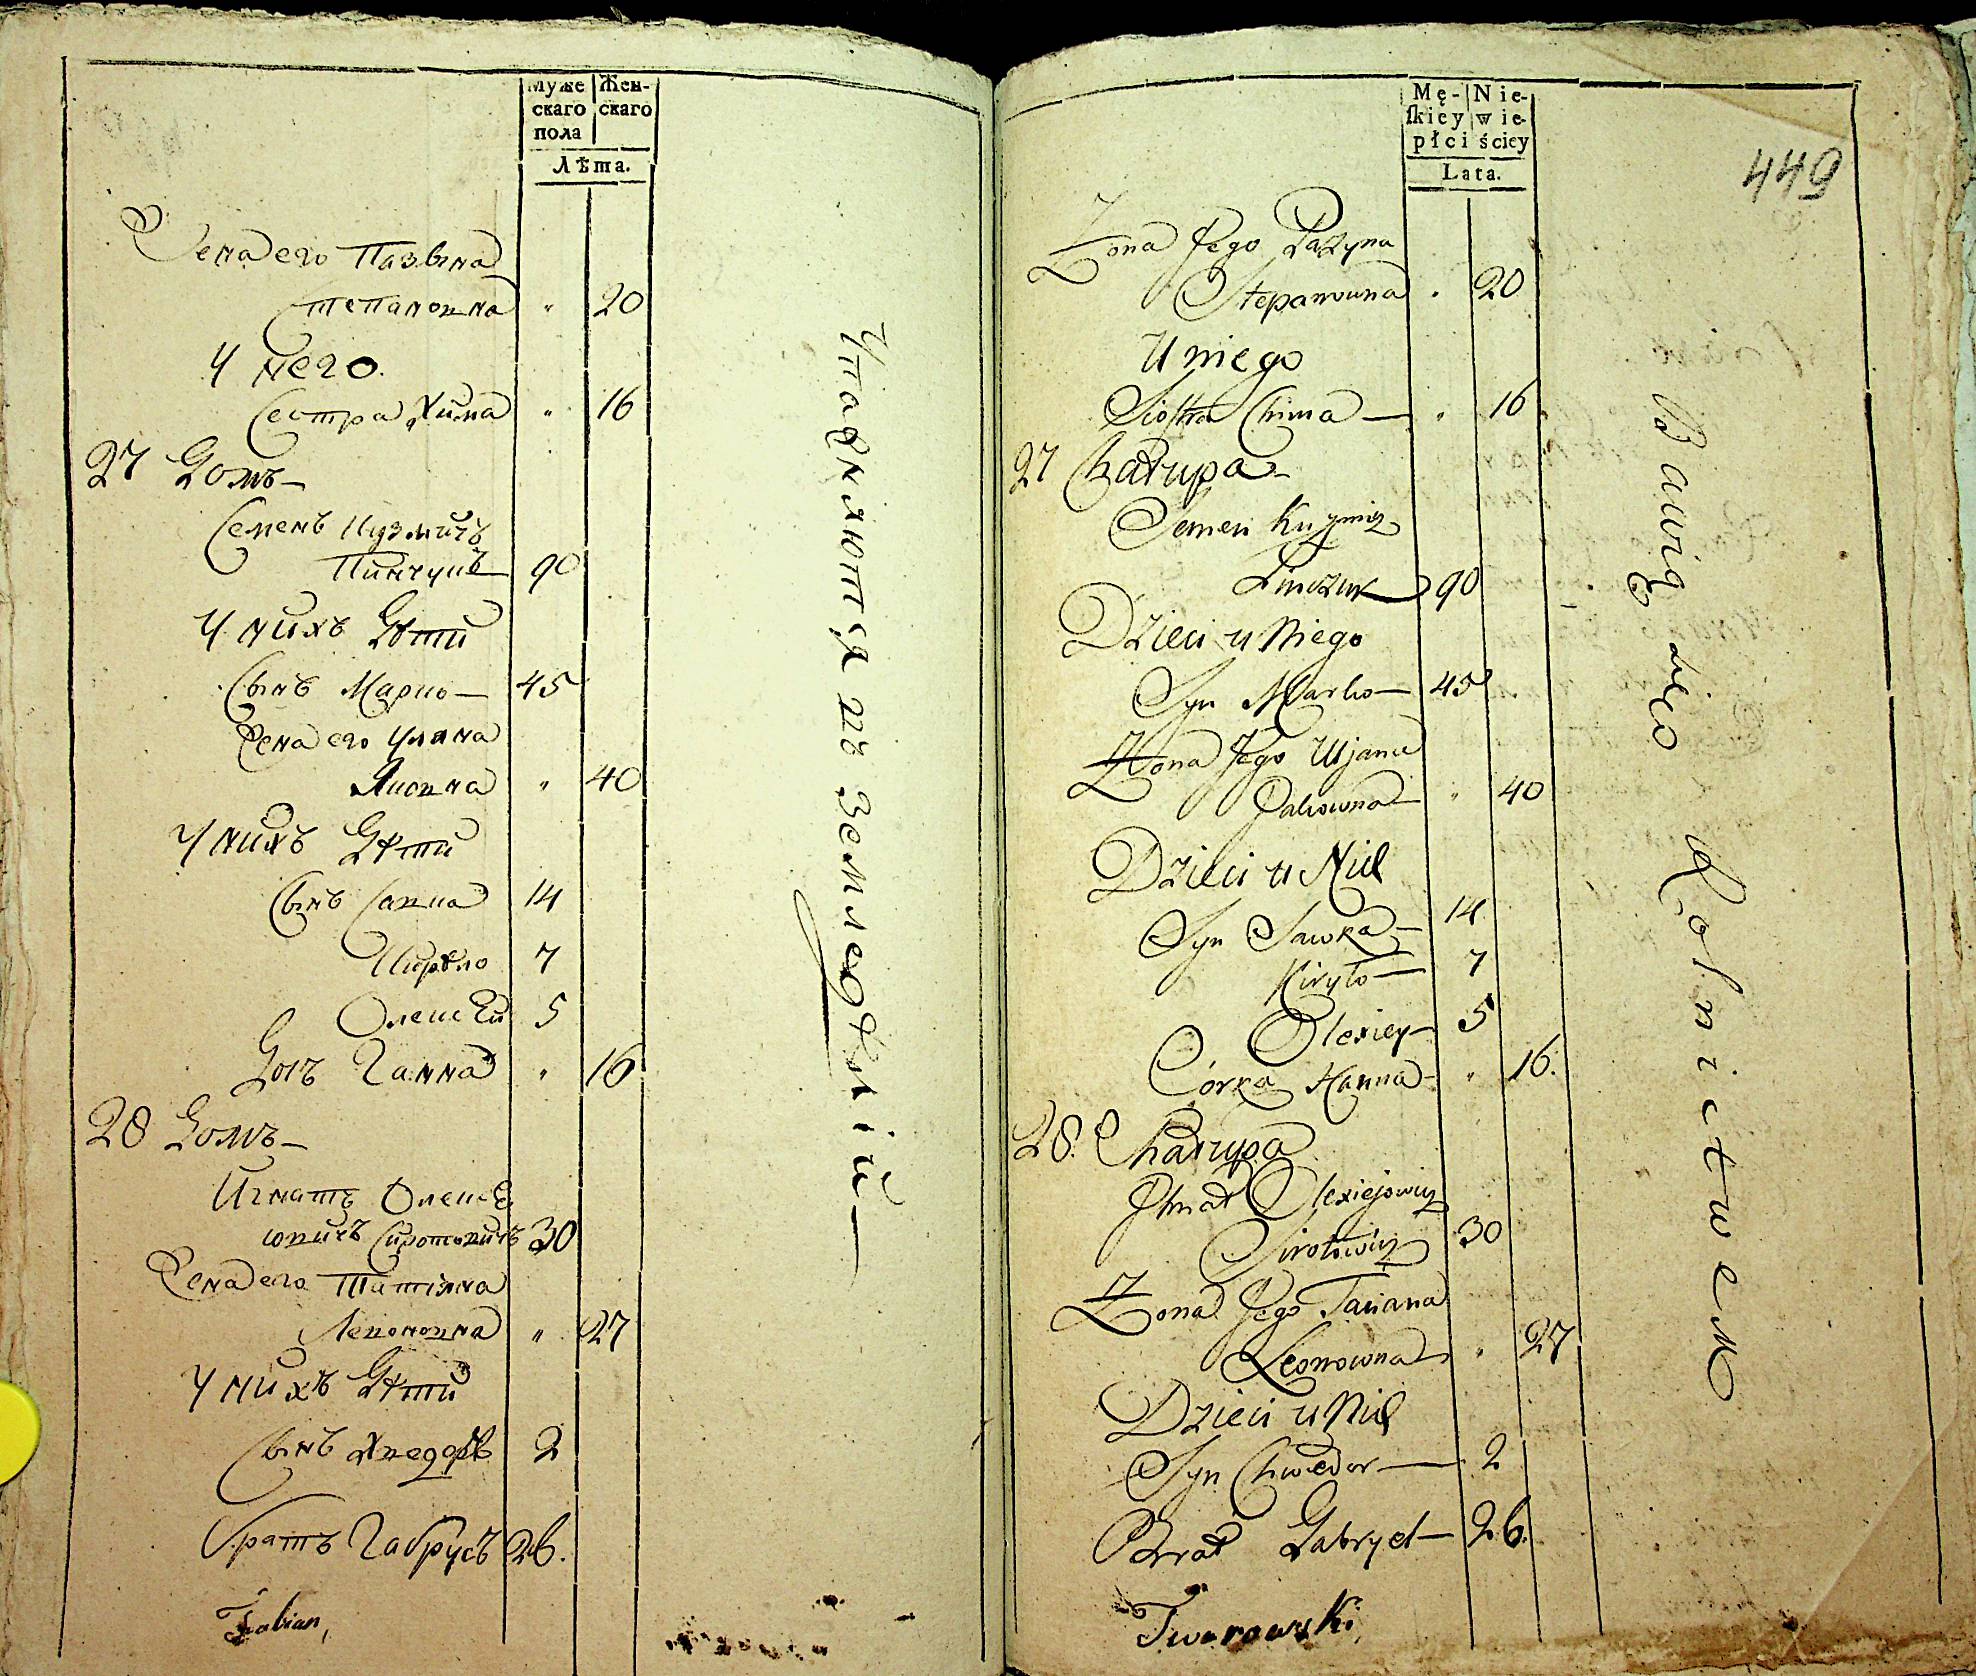 Муже
скаго
пола
Жен-
скаго
Лѣта.
Жена его Пазына
Степановна " 20
У него.
Сестра Хима " 16
27 Домъ —
Семенъ Кузмичъ
Пинчукъ 90
У нихъ Дѣти
Сынъ Марко — 45
Жена его Уляна
Яковна " 40
У нихъ Дѣти
Сынъ Савка 14
Кирыло 7
Олексѣй 5
Дочь Ганна " 16
28 Домъ —
Игнатъ Олексѣ
ювичъ Сиротовичъ 30
Жена его Татіяна
Левоновна " 27
У нихъ Дѣти
Сынъ Хведоръ 2
братъ Габрусь 26.
Fabian,
Упражняются въ Земледѣлій —
Mę-
skiey
płci
Nie-
wie-
ściey
Lata.
449
Zona Jego Pazyna
Stepanowna " 20
U niego
Siostra Chima — " 16
27 Chałupa —
Semen Kuzmicz
Pinczuk 90
Dzieci u Niego
Syn Marko — 45
Zona Jego Uljana
Jakowna — " 40
Dzieci u Nich
Syn Sawka — 14
Kiryło — 7
Olexiey — 5
Córka Hanna — " 16.
28. Chałupa
Jhnat Olexiejowicz
Sirotowicz 30
Zona Jego Taciana
Leonowna " 27
Dzieci u Nich
Syn Chwedor — 2
Brat Gabryel — 26.
Twarowski
Bawią się Rolnictwem